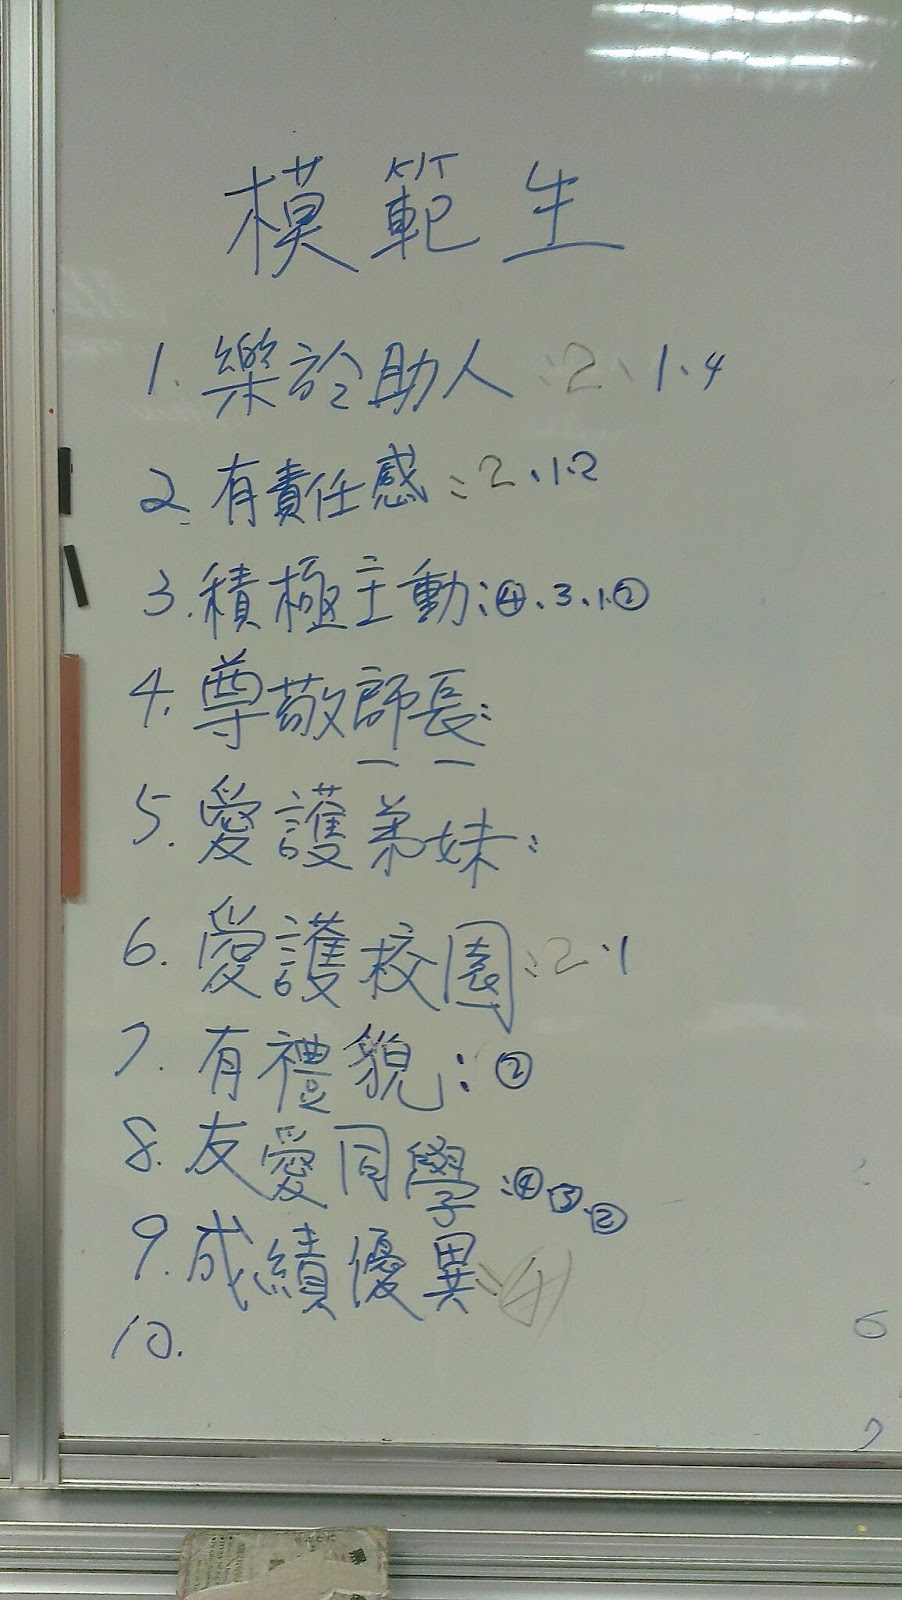 模範生
1. 樂於助人：2、1、4
2. 有責任感：2、1、2
3. 積極主動：④、3、1、②
4. 尊敬師長：
5. 愛護弟妹：
6. 愛護校園：2、1
7. 有禮貌：②
8. 友愛同學：④、③、②
9. 成績優異：④
10.
6